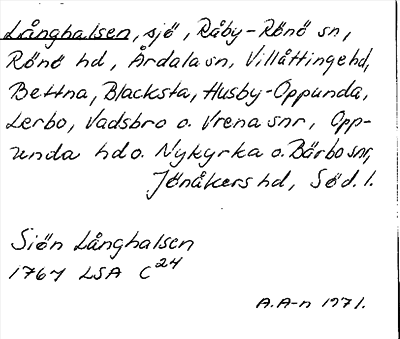 Långhalsen, sjö, Råby-Rönö sn,
Rönö hd, Årdala sn, Villåttinge hd,
Bettna, Blacksta, Husby-Oppunda,
Lerbo, Vadsbro o. Vrena snr, Opp-
unda hd o. Nykyrka o. Bärbo snr,
Jönåkers hd, Söd. l.
Siön Långhalsen
1767 LSA C 24
A. A-n 1971.